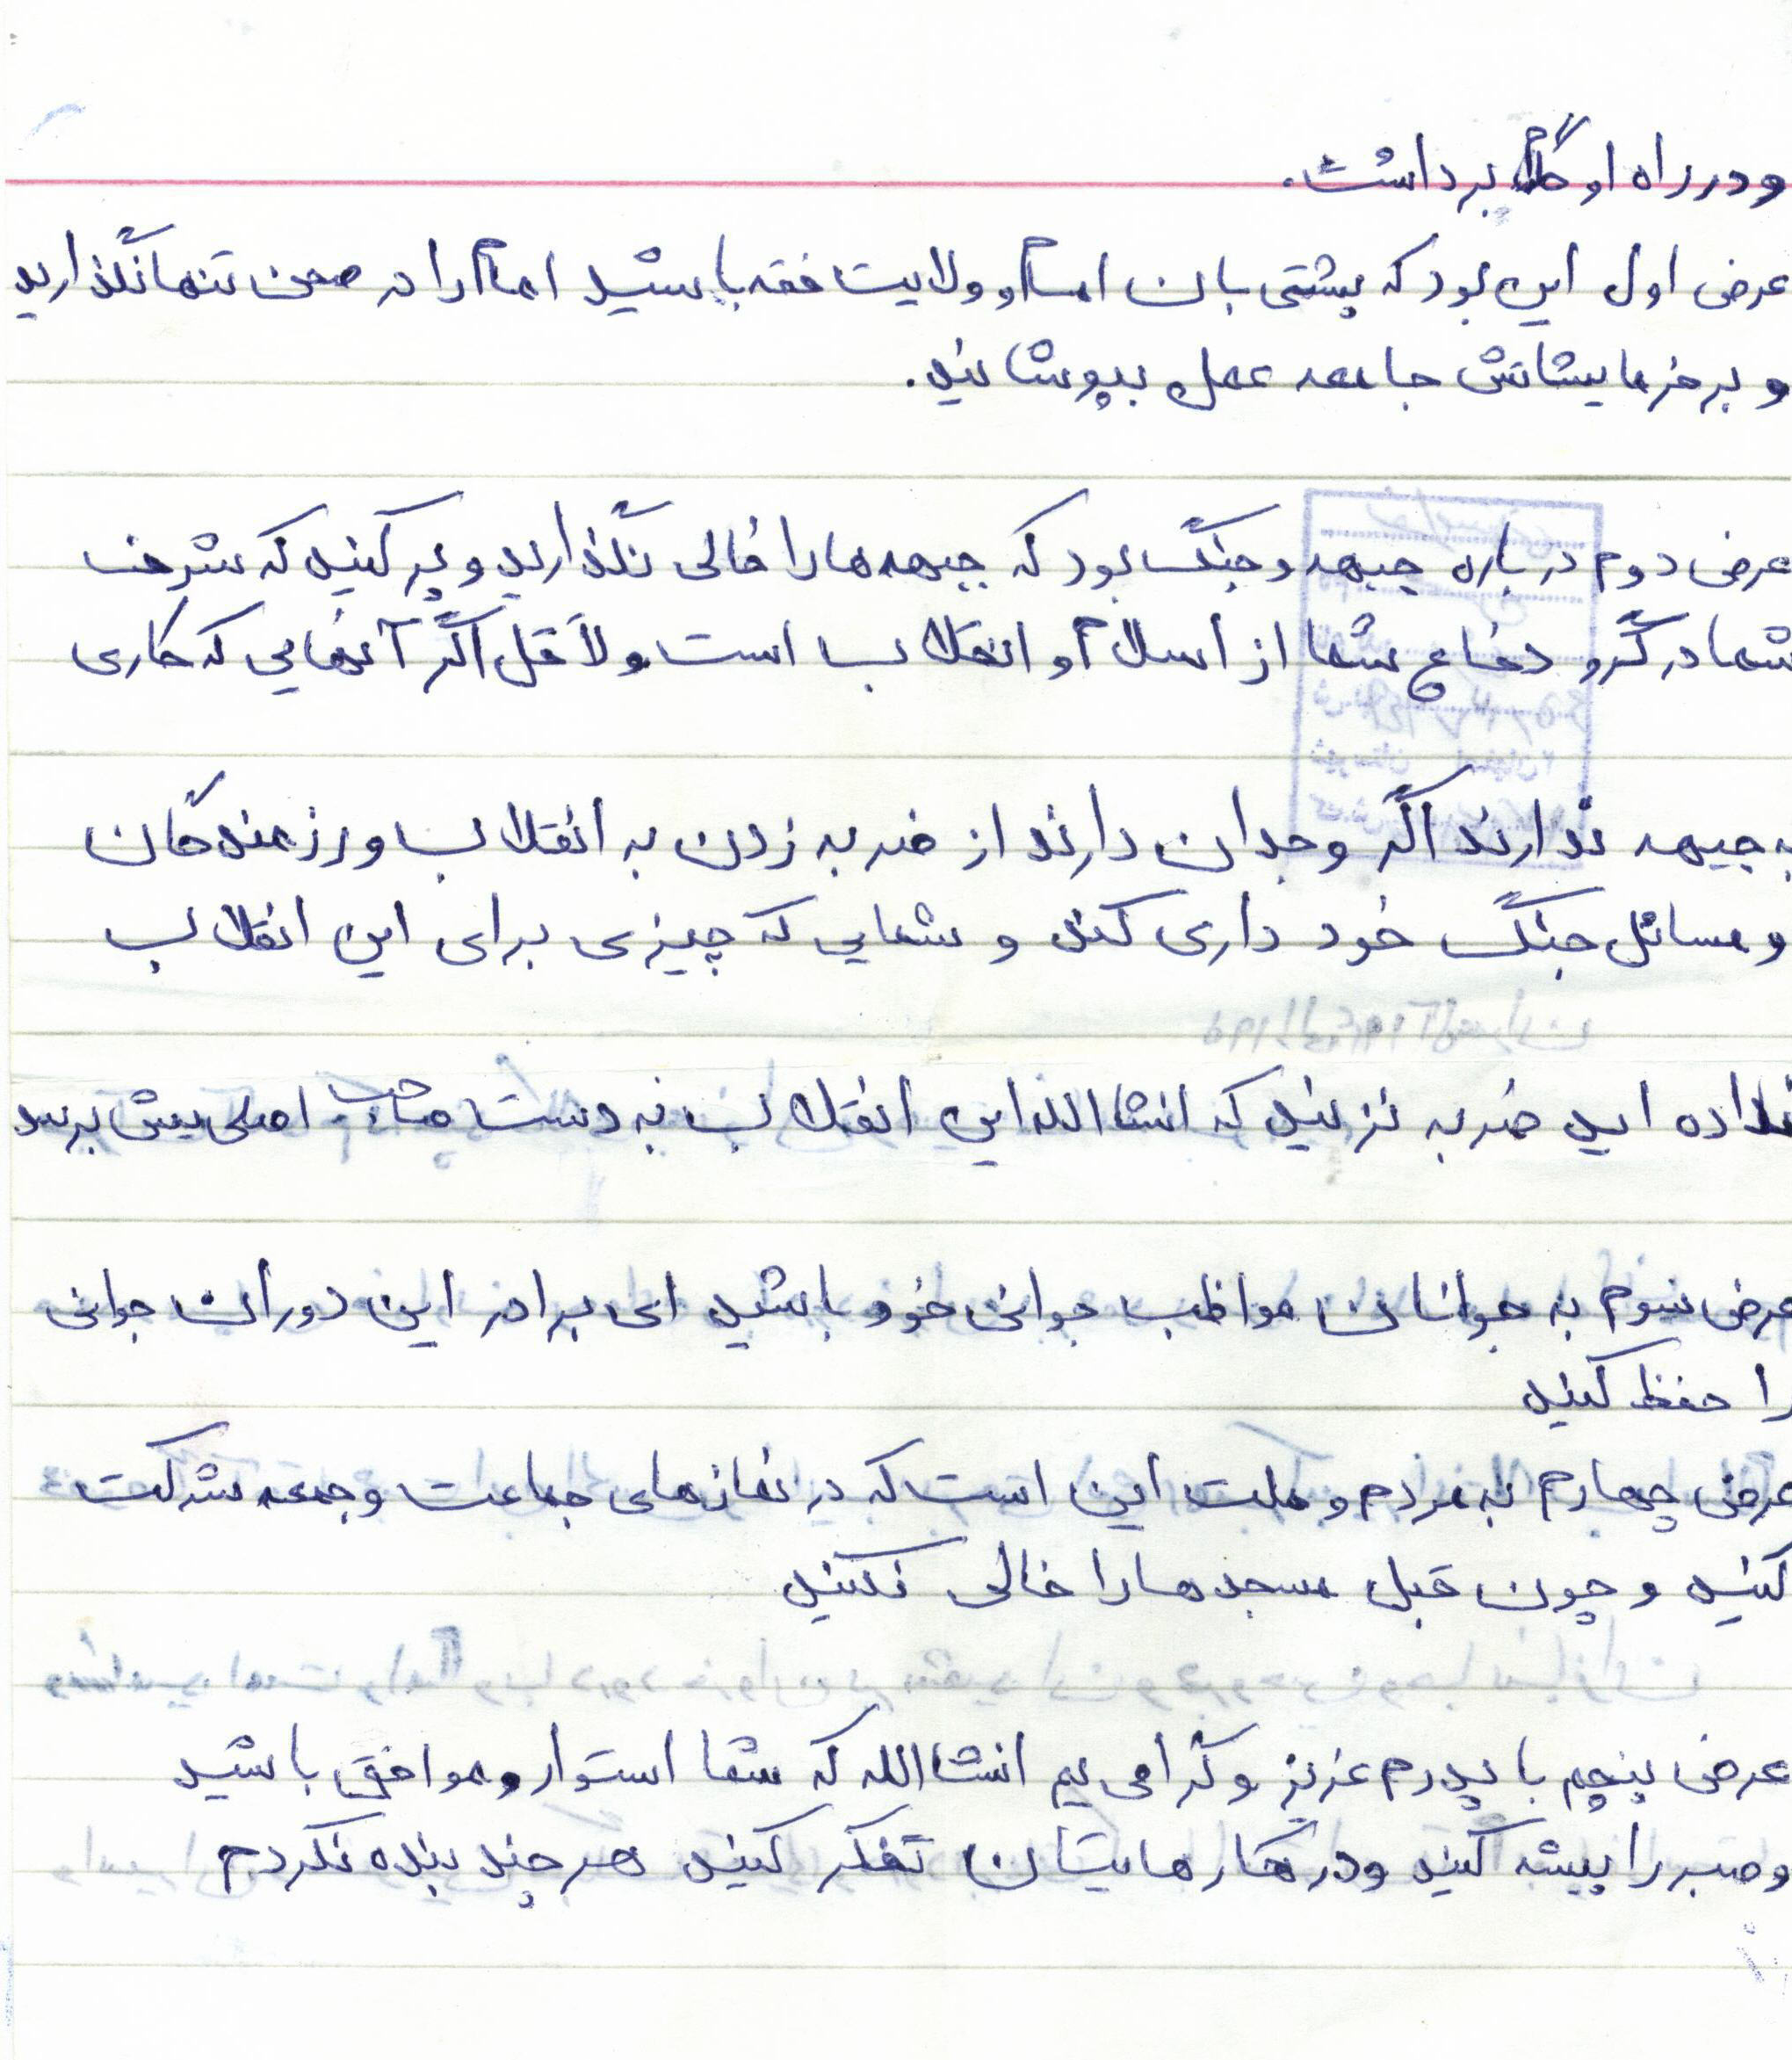 و در راه او گام برداشت.
عرض اول این بود که پشتی بان امام و ولایت فقه باشید امام را در صحن تنها نگذارید
و بر فرمایشاتش جامعه عمل بپوشانید.
عرض دوم در باره جبهه و جنگ بود که جبهه ها را خالی نگذارید و پر کنید که شرف
شما در گرو دفاع شما از اسلام و انقلاب است ولا قل اگر آنهایی که کاری
به جبهه ندارند اگر وجدان دارند از ضربه زدن به انقلاب و رزمندگان
و مسائل جنگ خود داری کنند و شمایی که چیزی برای این انقلاب
نداده اید ضربه نزنید که انشاالله این انقلاب به دست صاحب اصلی یش برسد
عرض سوم به جوانان مواظب جوانی خود باشید ای برادر این دوران جوانی
را حفظ کنید
عرض چهارم به مردم و ملت این است که در نمازهای جماعت و جمعه شرکت
کنید و چون قبل مسجد ها را خالی نکنید
عرض پنجم با پدرم عزیز و گرامی یم انشاالله که شما استوار و موافق باشید
و صبر را پیشه کنید و در کار هایتان تفکر کنید هر چند بنده نکردم